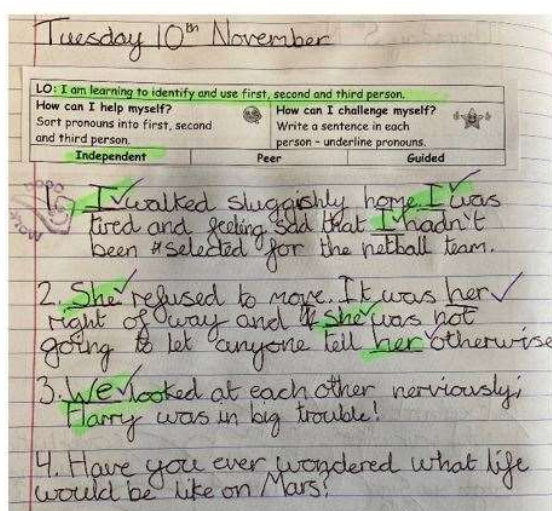 Tuesday 10th November
LO: I am learning to identify and use first, second and third person.
How can I help myself?
Sort pronouns into first, second
and third person.
How can I challenge myself?
Write a sentence in each
person - underline pronouns.
Independent Peer Guided
1. I walked sluggishly home. I was
tired and feeling sad that I hadn't
been selected for the netball team.
2. She refused to move. It was her
right of way and she was not
going to let anyone tell her otherwise
3. We looked at each other nerviously;
Harry was in big trouble!
4. Have you ever wondered what life
would be like on Mars?